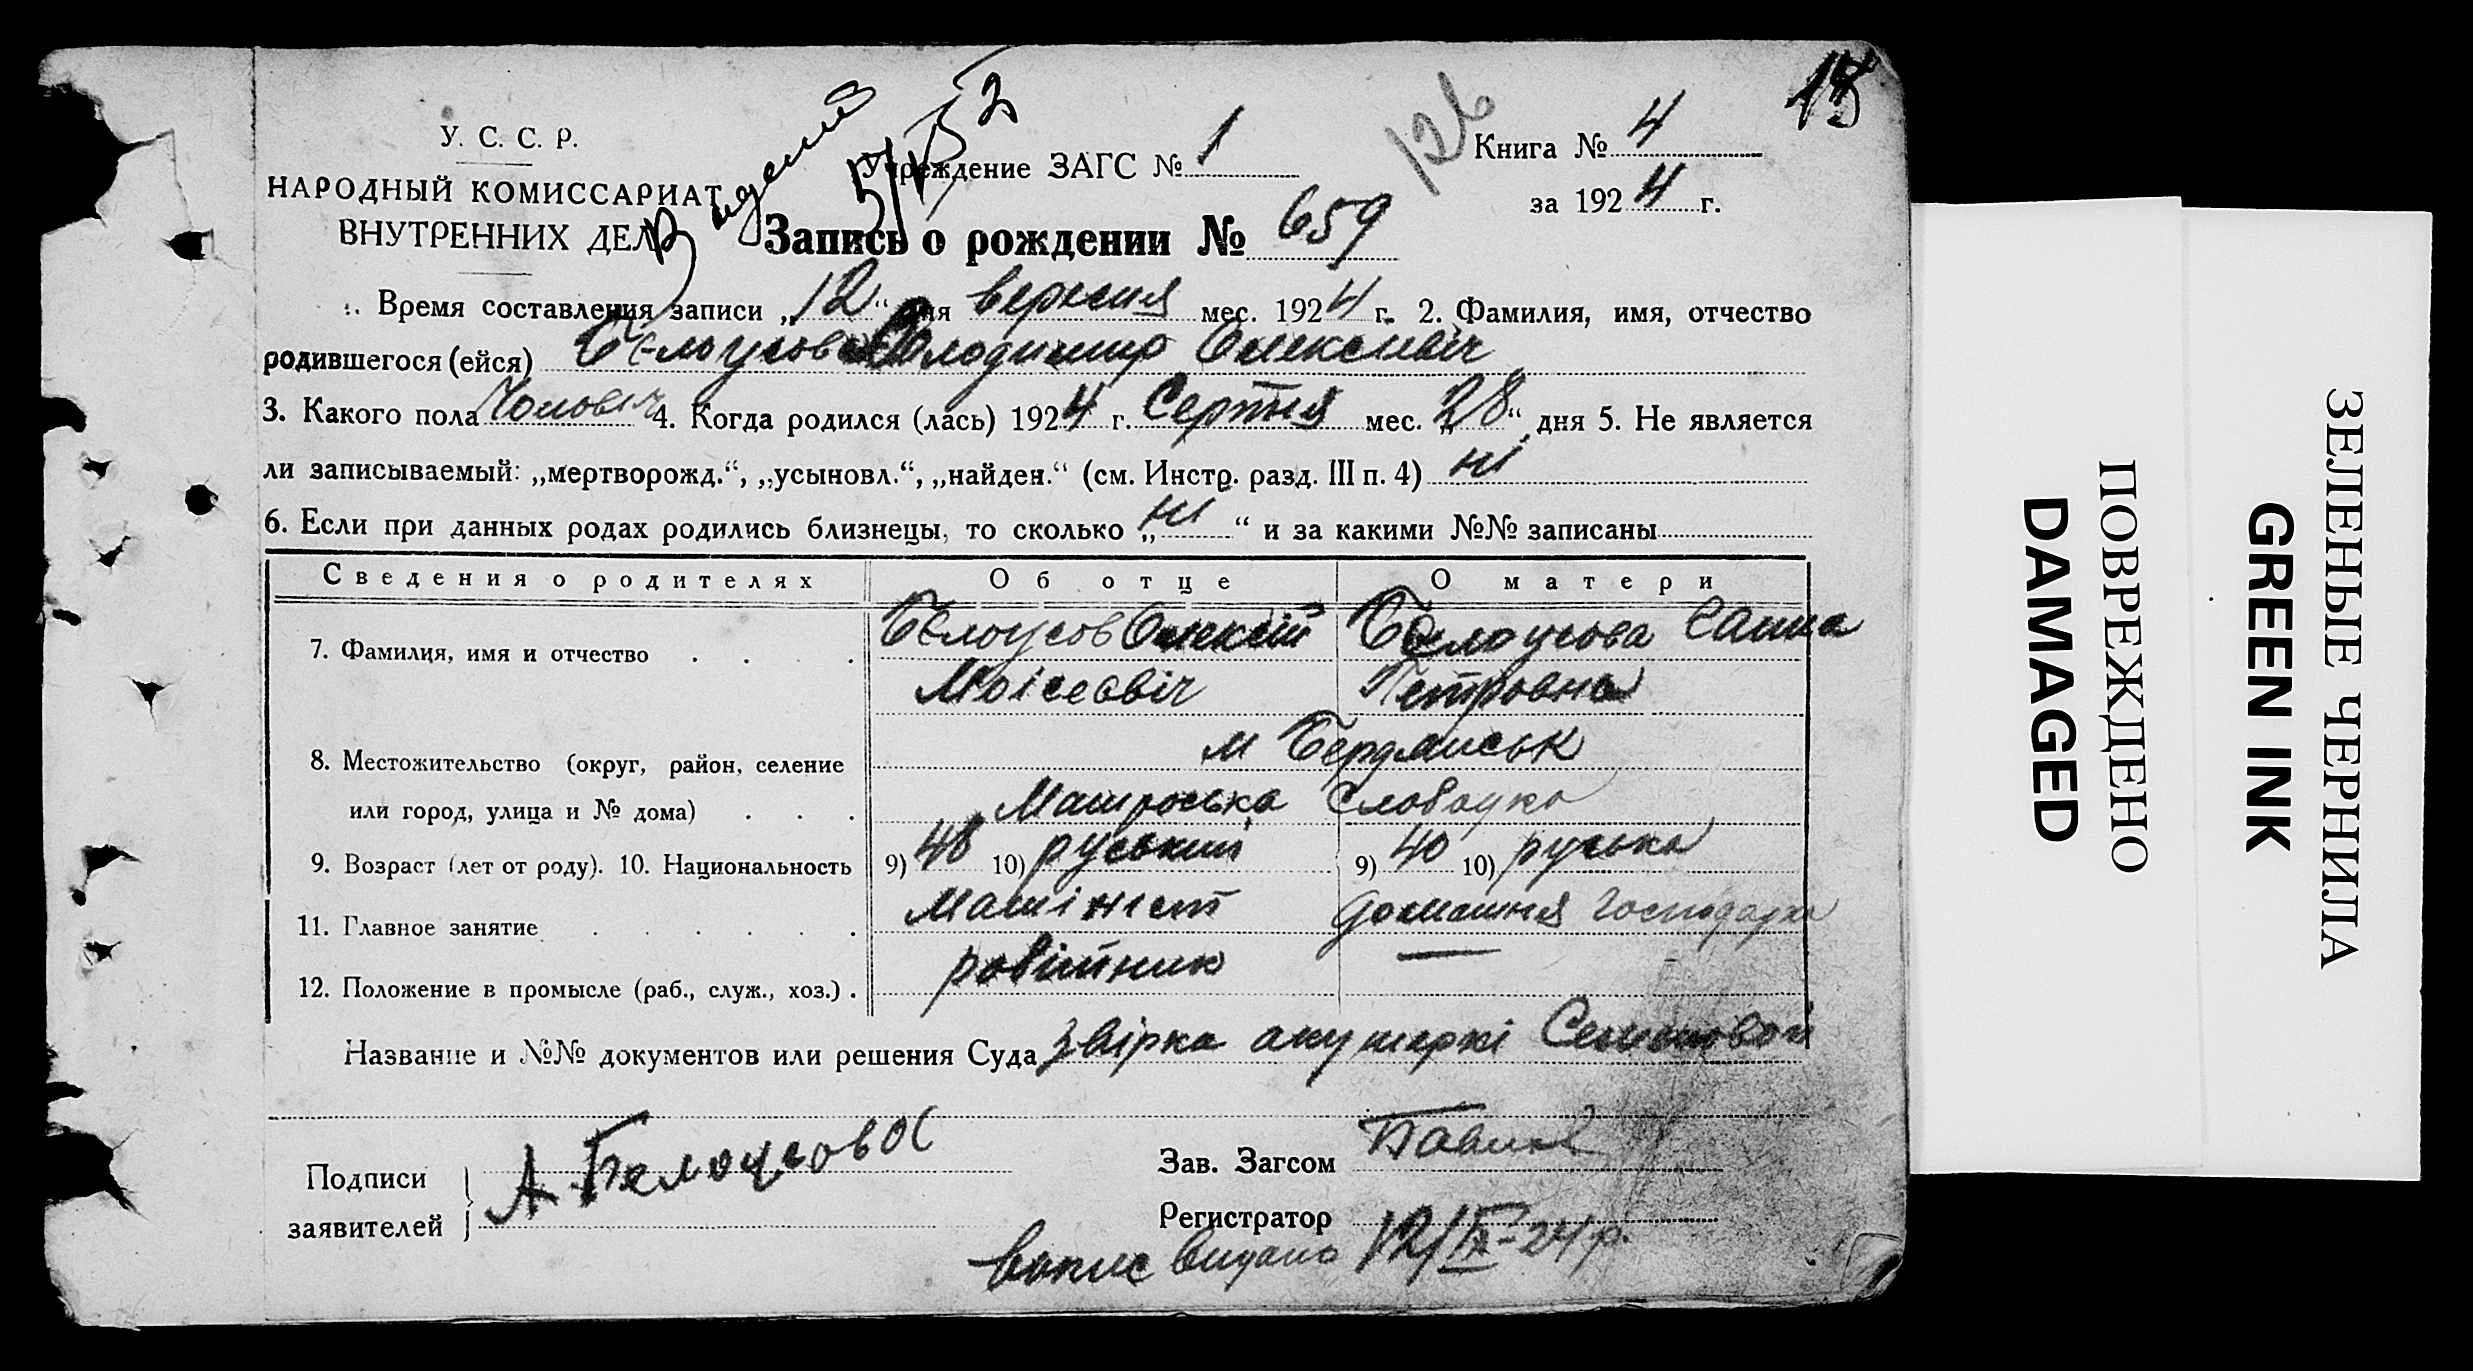 126
У. С. С. Р.
НАРОДНЫЙ КОМИССАРИАТ
ВНУТРЕННИХ ДЕЛ
Учреждение ЗАГС № 1
Книга № 4
за 1924 г.
Запись о рождении № 659
1. Время составления записи „12“ дня вересня мес. 1924 г. 2. Фамилия, имя, отчество
родившегося (ейся) Белоусов Володимир Олексиевіч
3. Какого пола Чоловіч 4. Когда родился (лась) 1924 г. Серпня мес. „28“ дня 5. Не является
ли записываемый: „мертворожд.“, „усыновл.“, „найден.“ (см. Инстр. разд. III п. 4) ні
6. Если при данных родах родились близнецы, то сколько „ні“ и за какими №№ записаны
Сведения о родителях Об отце О матери
7. Фамилия, имя и отчество Белоусов Олексій Белоусова Ганна
Моісеєвіч Петровна
м Бердянськ
8. Местожительство (округ, район, селение
или город, улица и № дома) Матроська Слободка
9. Возраст (лет от роду). 10. Национальность 9) 48 10) руський 9) 40 10) руська
11. Главное занятие Машініст домашня господарка
12. Положение в промысле (раб., служ., хоз.) робітник —
Название и №№ документов или решения Суда звірка акушеркі
Подписи
заявителей А. Белоусова
Зав. Загсом
Регистратор
видано 12/IX-24 р.
ПОВРЕЖДЕНО
DAMAGED
ЗЕЛЕНЫЕ ЧЕРНИЛА
GREEN INK